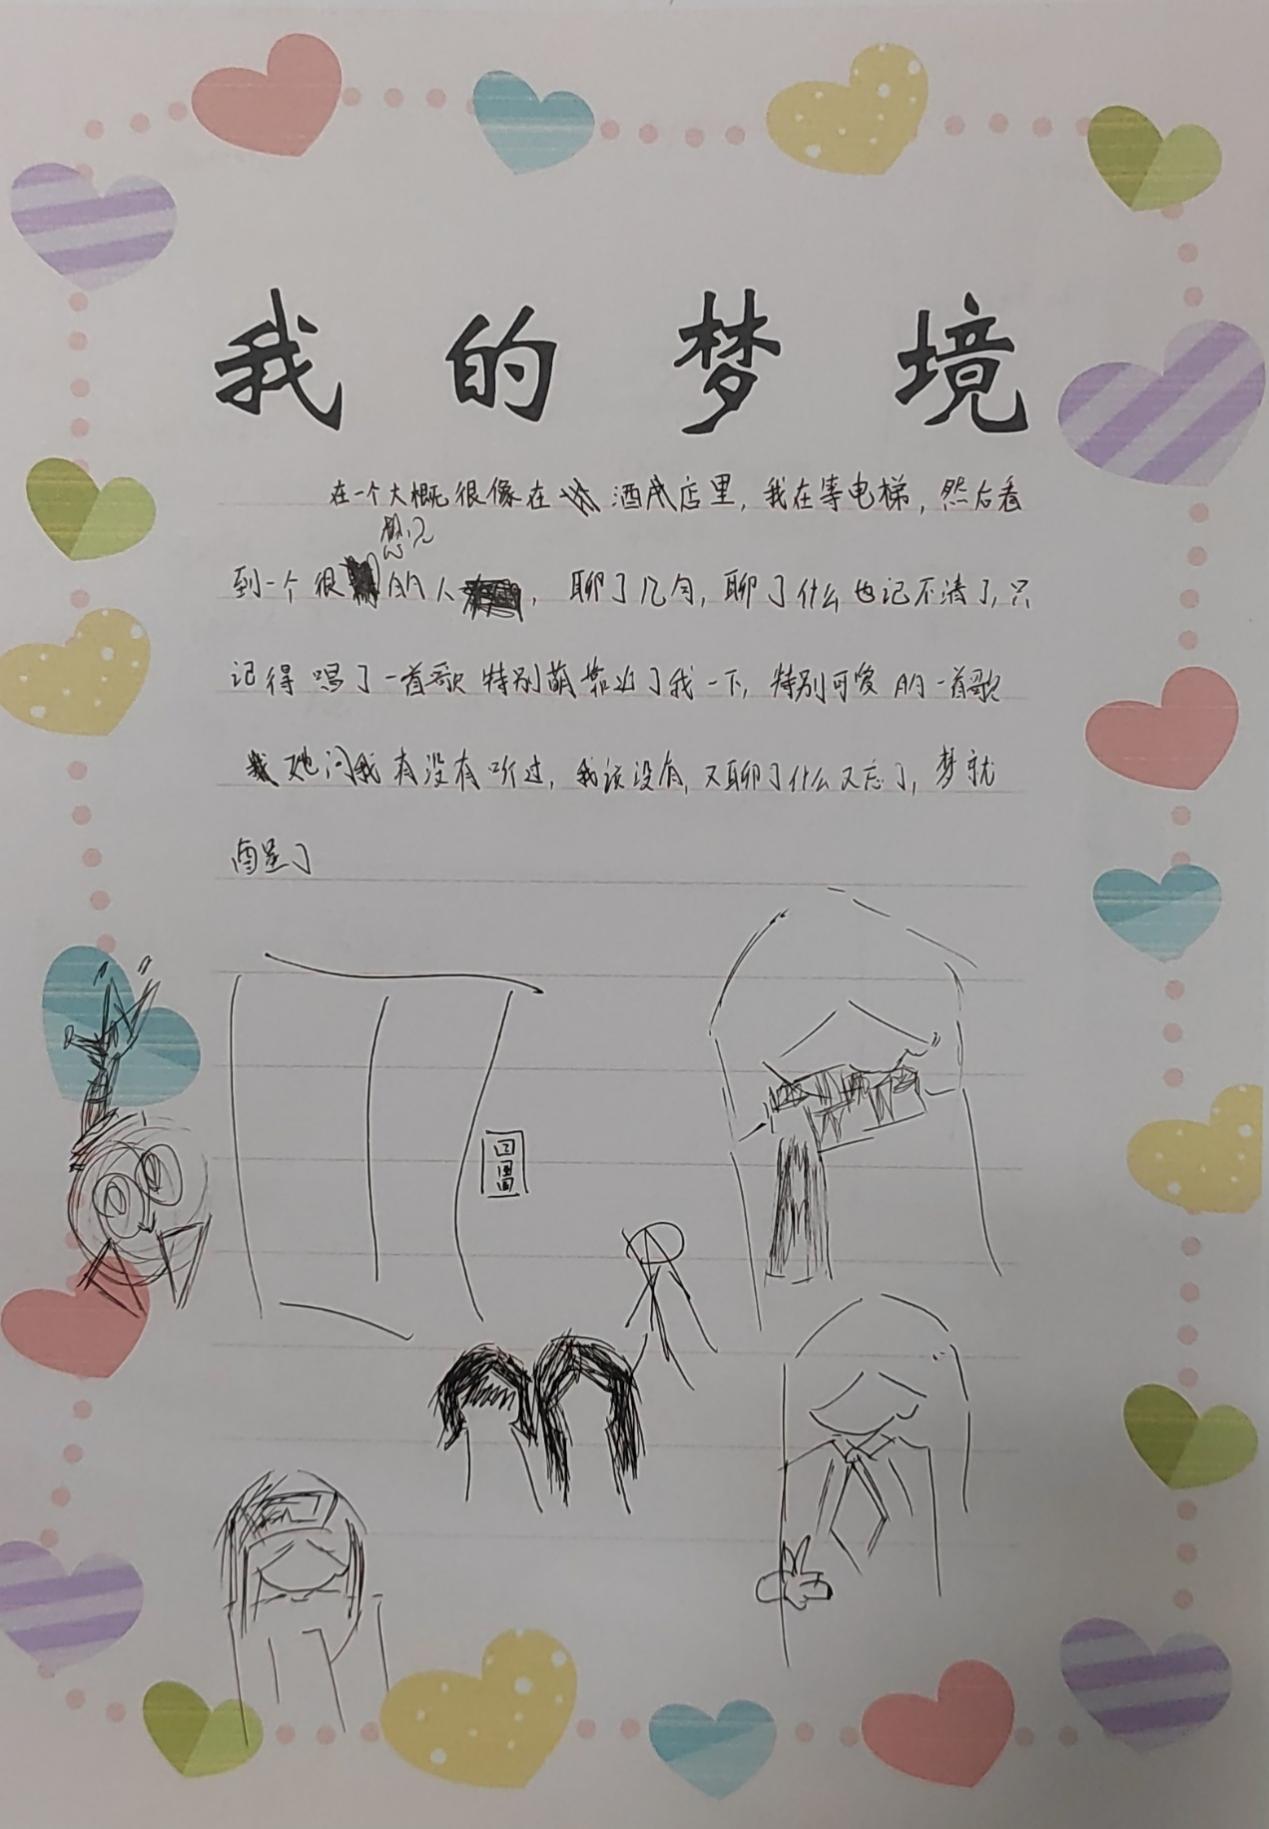 我的梦境
在一个大概很像在酒店里，我在等电梯，然后看
想见
到一个很的人，聊了几句，聊了什么也记不清了，只
记得唱了一首歌特别萌靠近了我一下，特别可爱的一首歌
她问我有没有听过，我说没有，又聊了什么又忘了，梦就
醒了